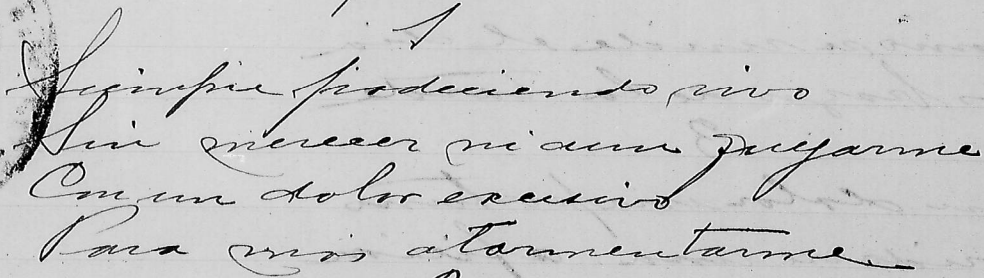 1
Siempre padeciendo vivo
Sin merecer ni aun
Con un dolor excesivo
Para mas atormentarme